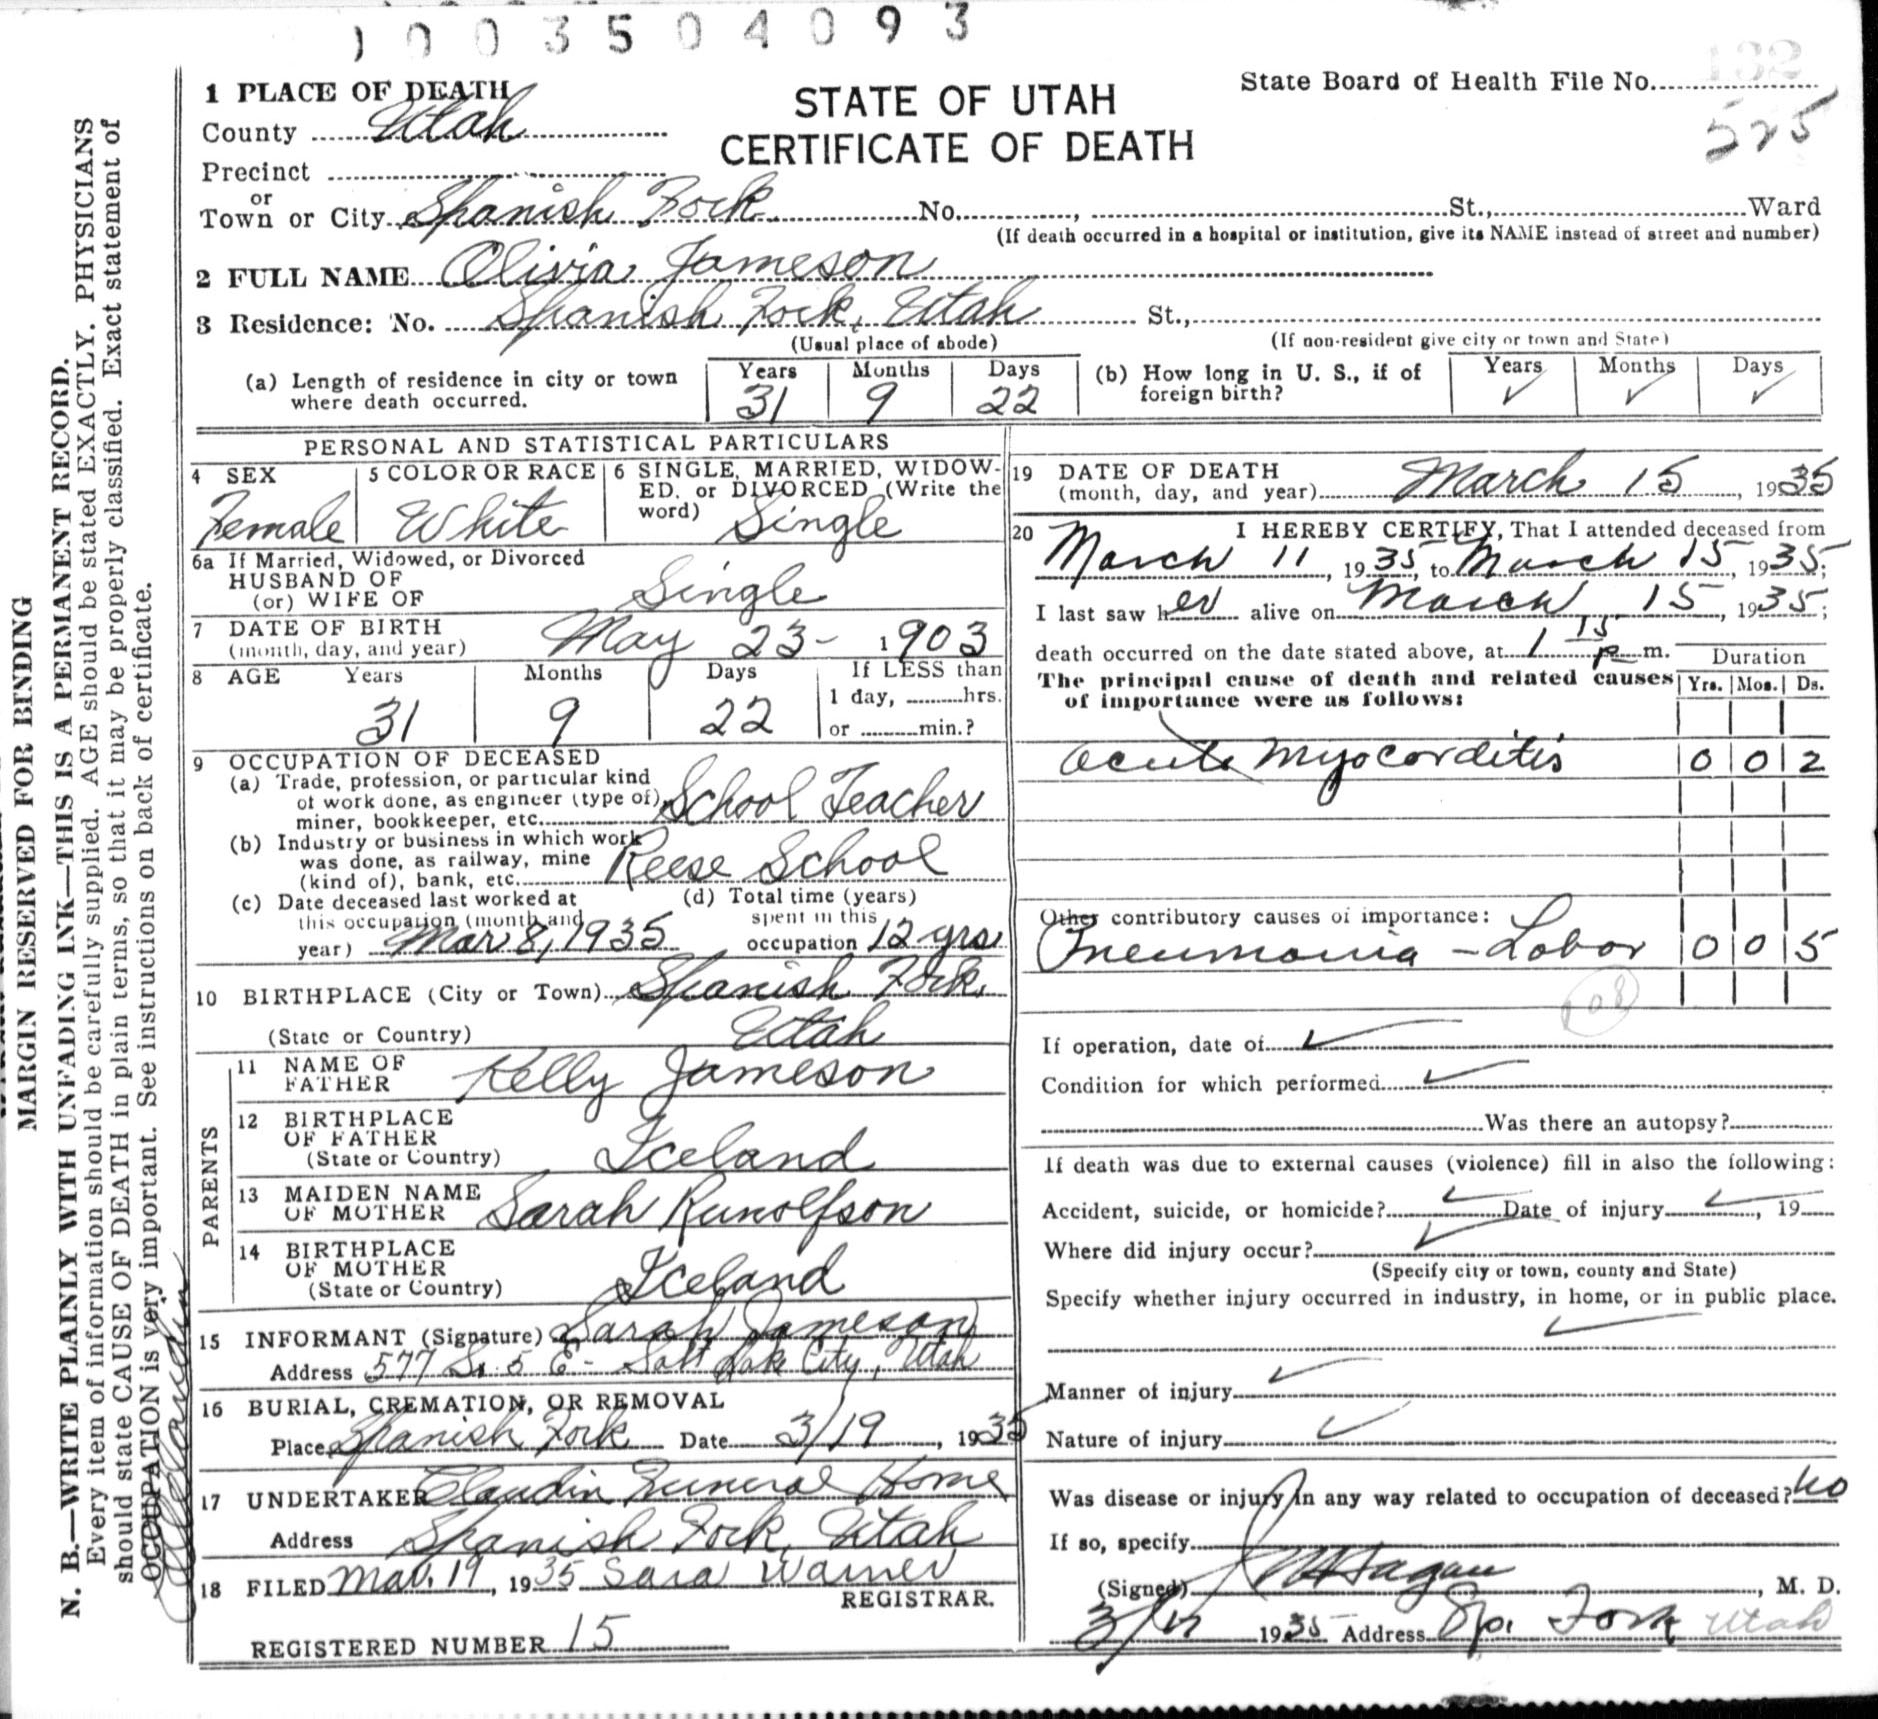 1003504093
1 PLACE OF DEATH
STATE OF UTAH
CERTIFICATE OF DEATH
State Board of Health File No. 132
525
County Utah
Precinct
or
Town or City Spanish Fork No. , St., Ward
(If death occurred in a hospital or institution, give its NAME instead of street and number)
2 FULL NAME Olivia Jameson
3 Residence: No. Spanish Fork, Utah St.,
(Usual place of abode) (If non-resident give city or town and State)
(a) Length of residence in city or town where death occurred. Years 31 Months 9 Days 22
(b) How long in U. S., if of foreign birth? Years ✓ Months ✓ Days ✓
PERSONAL AND STATISTICAL PARTICULARS
4 SEX Female
5 COLOR OR RACE White
6 SINGLE, MARRIED, WIDOW-
ED. or DIVORCED (Write the
word) Single
6a If Married, Widowed, or Divorced
HUSBAND OF
(or) WIFE OF Single
7 DATE OF BIRTH
(month, day, and year) May 23- 1903
8 AGE Years 31 Months 9 Days 22
If LESS than
1 day, hrs.
or min.?
9 OCCUPATION OF DECEASED
(a) Trade, profession, or particular kind
of work done, as engineer (type of),
miner, bookkeeper, etc. School Teacher
(b) Industry or business in which work
was done, as railway, mine
(kind of), bank, etc. Reese School
(c) Date deceased last worked at
this occupation (month and
year) Mar 8, 1935
(d) Total time (years)
spent in this
occupation 12 yrs
10 BIRTHPLACE (City or Town) Spanish Fork,
(State or Country) Utah
PARENTS
11 NAME OF
FATHER Kelly Jameson
12 BIRTHPLACE
OF FATHER
(State or Country) Iceland
13 MAIDEN NAME
OF MOTHER Sarah Runolfson
14 BIRTHPLACE
OF MOTHER
(State or Country) Iceland
15 INFORMANT (Signature) Sarah Jameson
Address 577 So. 5 E- Salt Lake City, Utah
16 BURIAL, CREMATION, OR REMOVAL
Place Spanish Fork Date 3/19, 1935
17 UNDERTAKER Claudin Funeral Home
Address Spanish Fork, Utah
18 FILED Mar. 19, 1935 Sara Warner
REGISTRAR.
REGISTERED NUMBER 15
19 DATE OF DEATH
(month, day, and year) March 15, 1935
20 I HEREBY CERTIFY, That I attended deceased from
March 11, 1935, to March 15, 1935;
I last saw her alive on March 15, 1935;
death occurred on the date stated above, at 1 15 p m.
The principal cause of death and related causes
of importance were as follows:
Duration
Yrs. Mos. Ds.
Acute Myocorditis 0 0 2
Other contributory causes of importance:
Pneumonia - Lobor 0 0 5
108
If operation, date of ✓
Condition for which performed ✓
Was there an autopsy?
If death was due to external causes (violence) fill in also the following:
Accident, suicide, or homicide? ✓ Date of injury ✓, 19
Where did injury occur? ✓
(Specify city or town, county and State)
Specify whether injury occurred in industry, in home, or in public place.
✓
Manner of injury ✓
Nature of injury ✓
Was disease or injury in any way related to occupation of deceased? no
If so, specify
(Signed) Hagan, M. D.
1935 Address Sp. Fork Utah
MARGIN RESERVED FOR BINDING
N. B.—WRITE PLAINLY WITH UNFADING INK—THIS IS A PERMANENT RECORD.
Every item of information should be carefully supplied. AGE should be stated EXACTLY. PHYSICIANS
should state CAUSE OF DEATH in plain terms, so that it may be properly classified. Exact statement of
OCCUPATION is very important. See instructions on back of certificate.